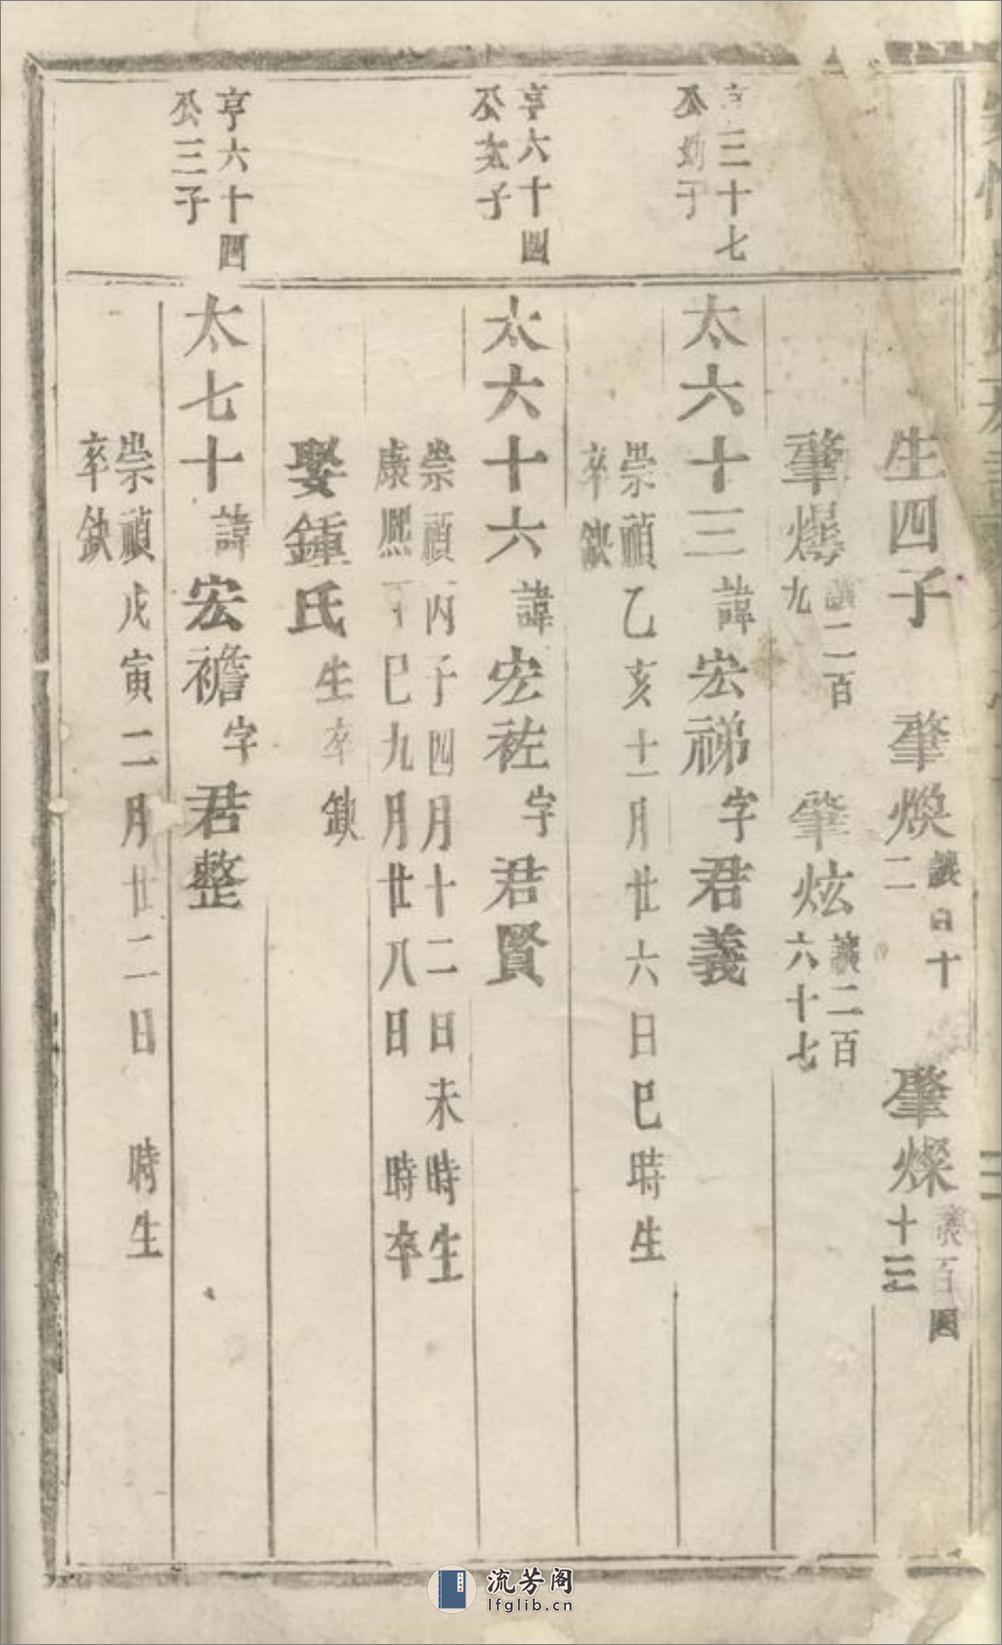 生四子 肇煥 議百十二 肇燦 議百四十三
肇燡 議二百九 肇炫 議二百六十七
亨三十七
公幼子
太六十三 諱宏祶 字君義
崇禎乙亥十一月廿六日巳時生
卒缺
亨六十四
公次子
太六十六 諱宏祐 字君賢
崇禎丙子四月十二日未時生
康熙丁巳九月廿八日 時卒
娶鍾氏 生卒缺
亨六十四
公三子
太七十 諱宏襜 字君整
崇禎戊寅二月廿二日 時生
卒缺
流芳阁
lfglib.cn